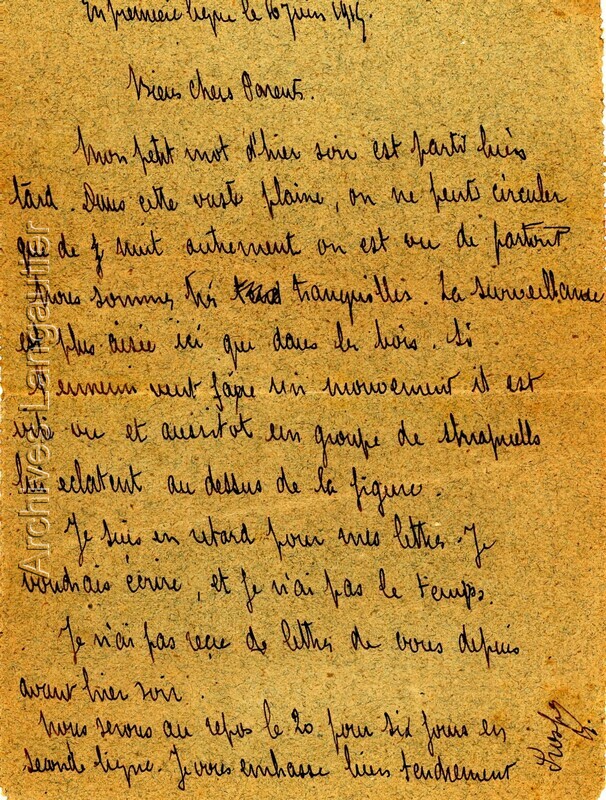 En première ligne le 16 Juin 1915.
Biens chers Parents.
Mon petit mot d'hier soir est parti très
tard. Dans cette vaste plaine, on ne peut circuler
que de nuit autrement on est vu de partout
nous sommes très tranquilles. La surveillance
est plus aisée ici que dans les bois. Si
ennemi veut faire un mouvement il est
vite vu et aussitot un groupe de shrapnells
lui eclatent au dessus de la figure.
Je suis en retard pour mes lettres. Je
voudrais écrire, et je n'ai pas le temps.
Je n'ai pas reçu de lettres de vous depuis
avant hier soir.
nous serons au repos le 20 pour six jours en
seconde ligne. Je vous embrasse bien tendrement
Archives Langautier